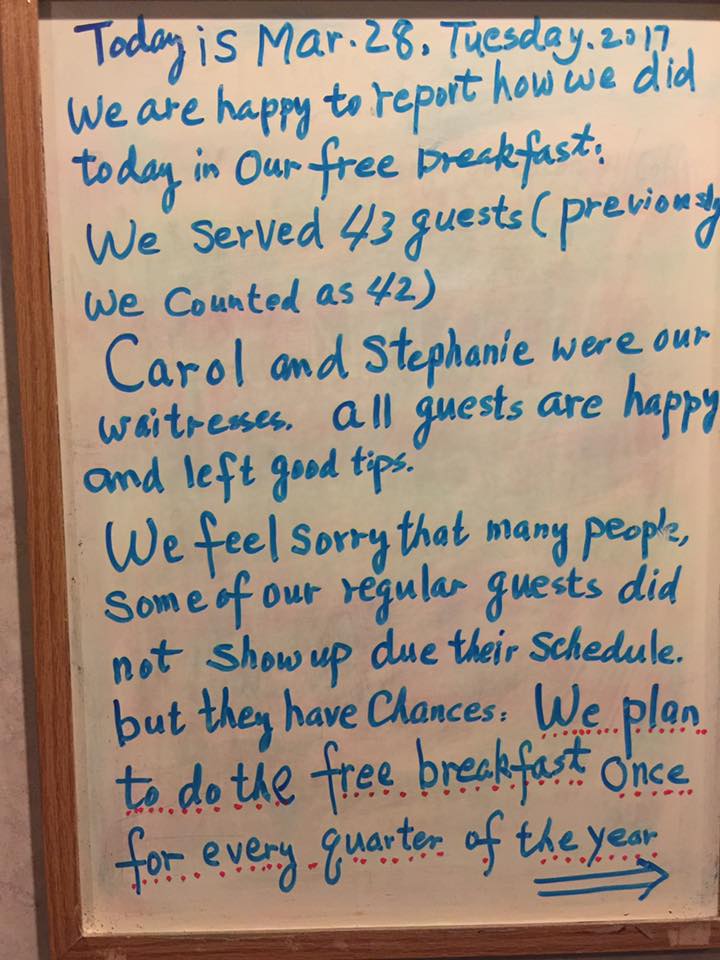 Today is Mar. 28, Tuesday. 2017
We are happy to report how we did
today in Our free breakfast:
We Served 43 guests (previously
we Counted as 42)
Carol and Stephanie were our
waitresses. all guests are happy
and left good tips.
We feel sorry that many people,
some of our regular guests did
not show up due their schedule.
but they have Chances: We plan
to do the free breakfast Once
for every quarter of the year